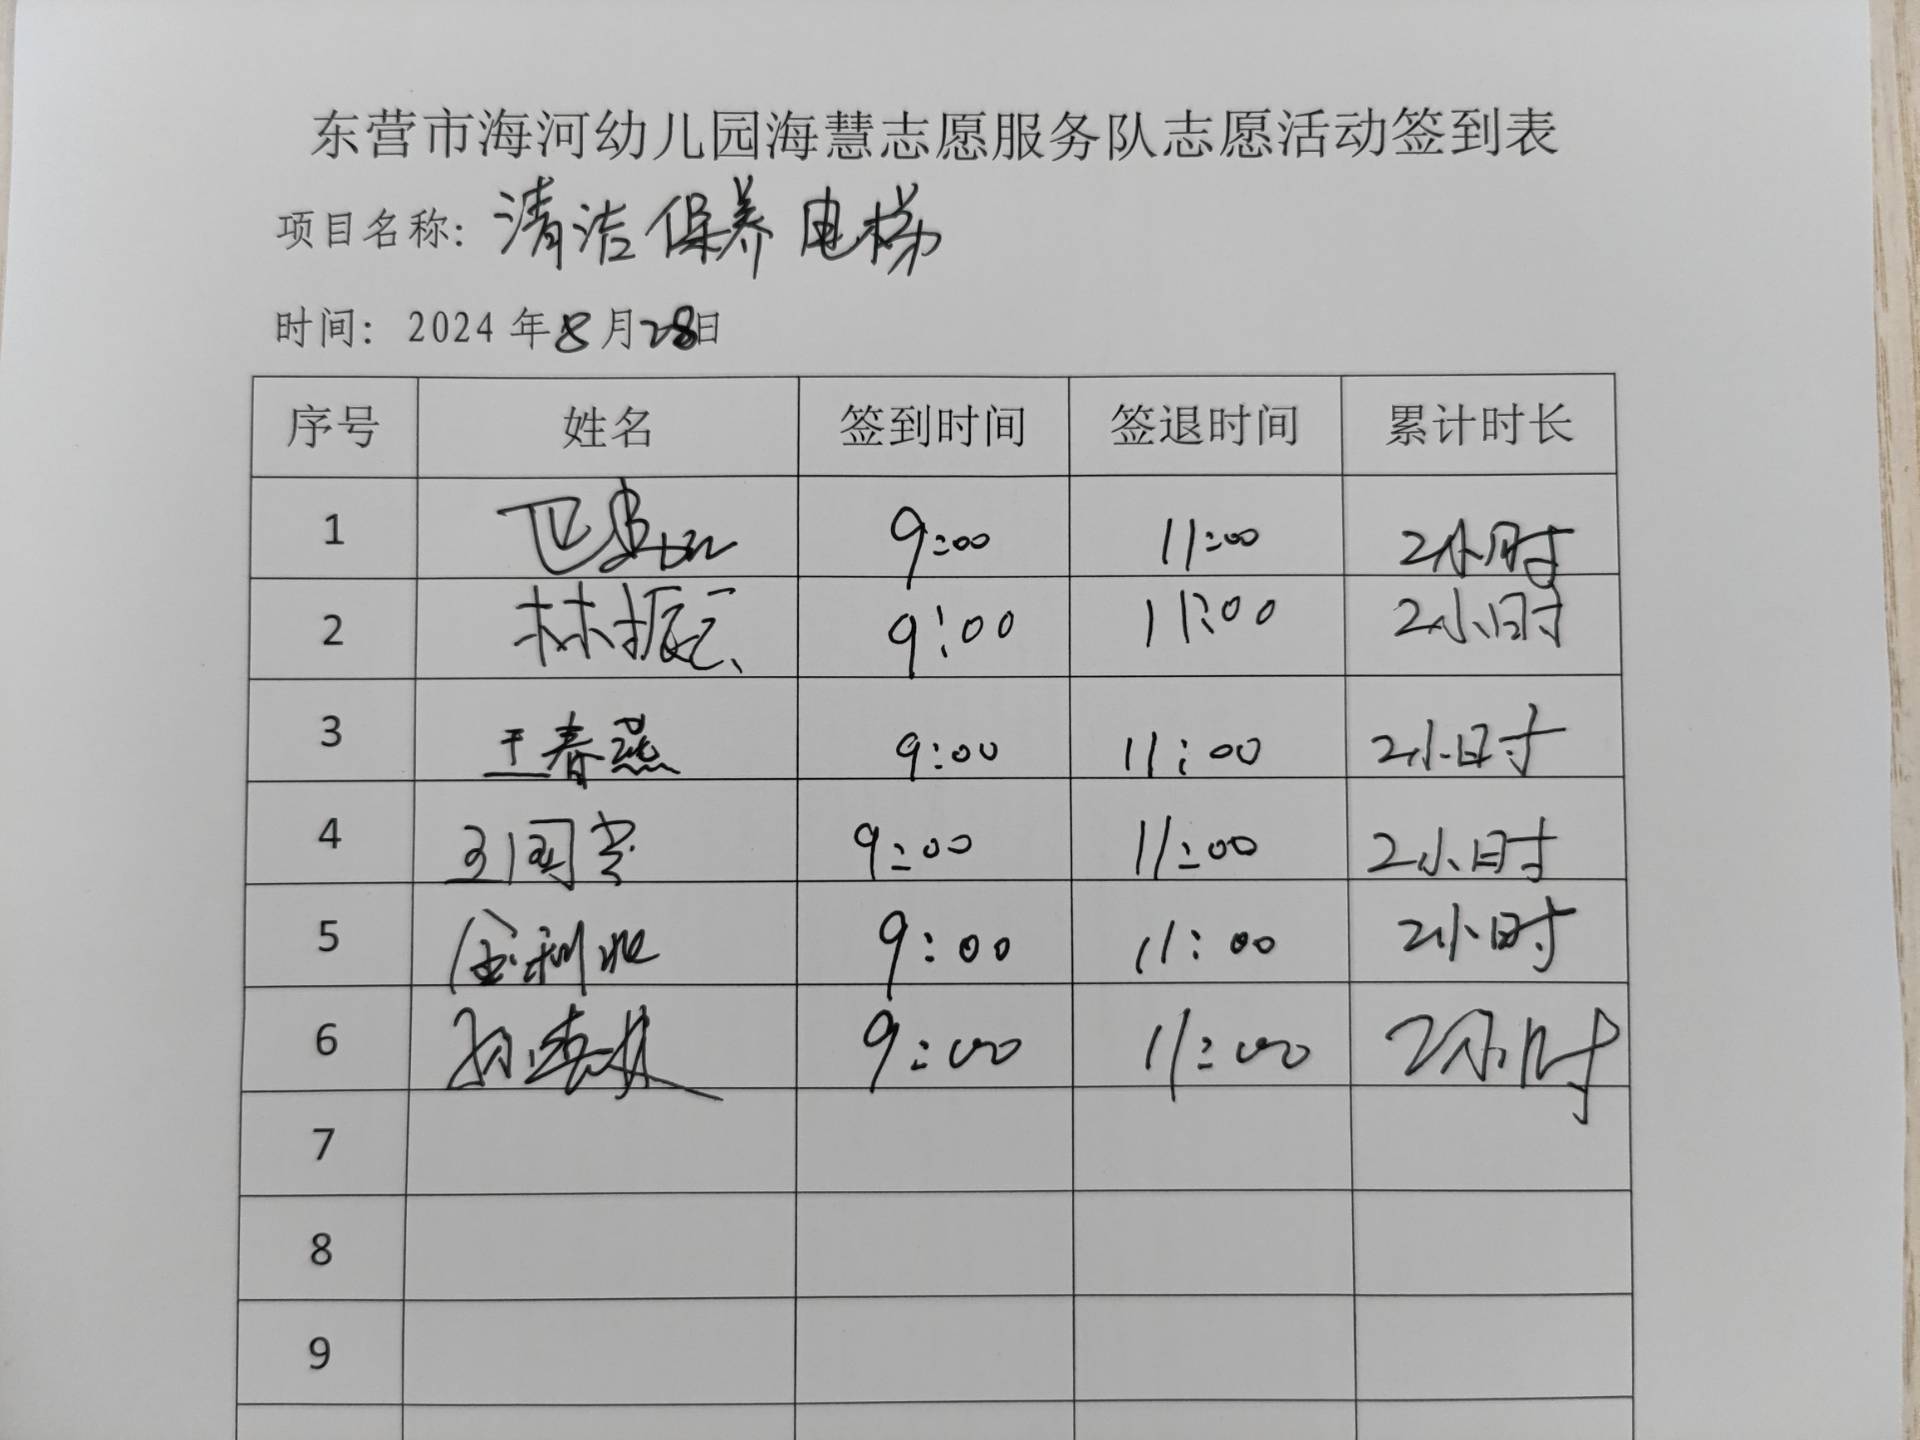 东营市海河幼儿园海慧志愿服务队志愿活动签到表
项目名称：清洁保养电梯
时间： 2024 年 8 月 28 日
序号 姓名 签到时间 签退时间 累计时长
1 9:00 11:00 2小时
2 林振 9:00 11:00 2小时
3 王春燕 9:00 11:00 2小时
4 王国 9:00 11:00 2小时
5 金利 9:00 11:00 2小时
6 9:00 11:00 2小时
7
8
9